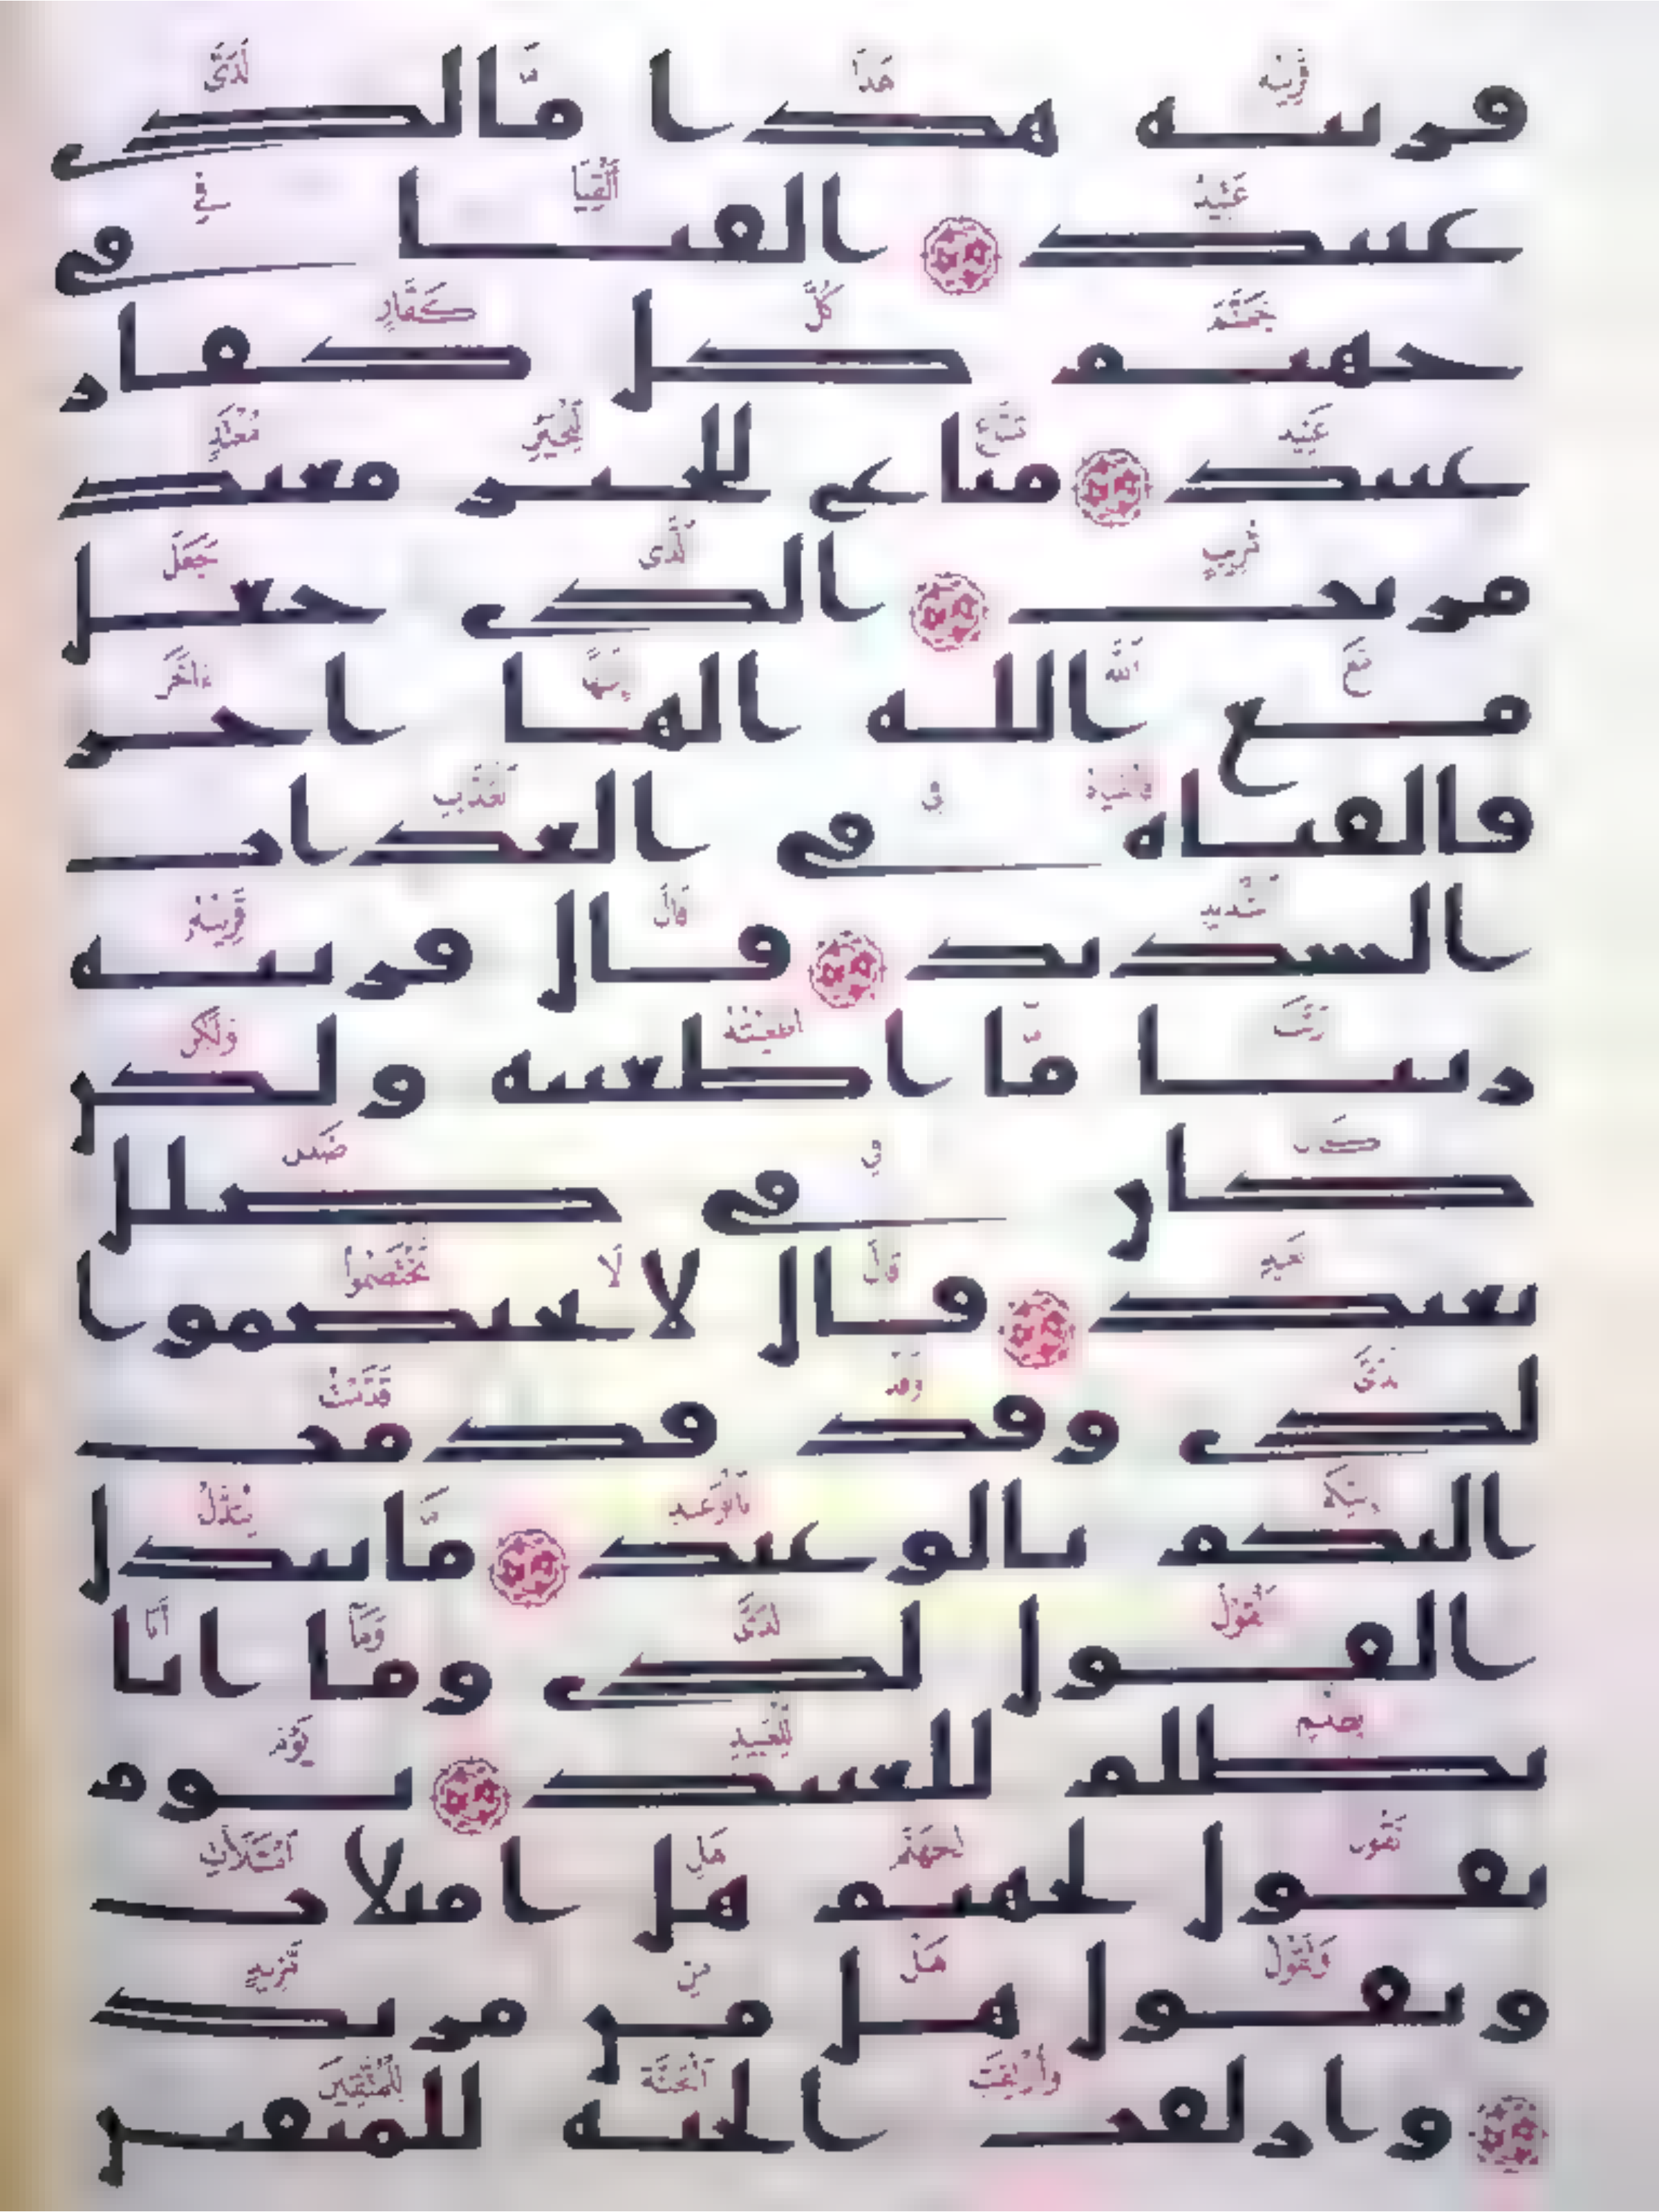 قرينه هذا مالدى
عتيد القيا فى
جهنم كل كفار
عنيد مناع للخير معتد
مريب الذى جعل
مع الله الها اخر
فالقياه فى العذاب
الشديد قال قرينه
ربنا ما اطغيته ولكن
كان فى ضلل
بعيد قال لا تختصموا
لدى وقد قدمت
اليكم بالوعيد ما يبدل
القول لدى وما انا
بظلم للعبيد يوم
نقول لجهنم هل امتلات
وتقول هل من مزيد
وازلفت الجنه للمتقين